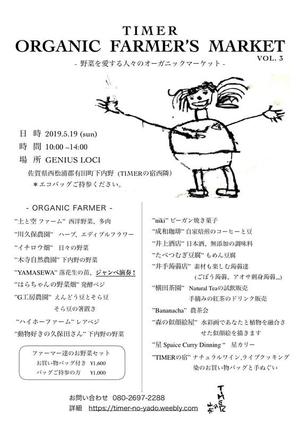 TIMER
ORGANIC FARMER'S MARKET
VOL. 3
- 野菜を愛する人々のオーガニックマーケット -
日 時 2019.5.19 (sun)
時 間 10:00~14:00
場 所 GENIUS LOCI
佐賀県西松浦郡有田町下内野 (TIMERの宿西隣)
*エコバッグご持参ください。
- ORGANIC FARMER -
"土と空 ファーム" 西洋野菜、多肉
"川久保農園" ハーブ、エディブルフラワー
"イチロウ畑" 日々の野菜
"木寺自然農園" 下内野の野菜
"YAMASEWA" 落花生の苗、ジャンベ演奏!
"はらちゃんの野菜畑" 発酵ベジ
"G工房農園" えんどう豆とそら豆
そら豆の箸置き
"ハイホーファーム" レアベジ
"動物好きの久保田さん" 下内野の野菜
ファーマー達のお野菜セット
お買い物バッグ付き ¥1,600
バッグご持参の方 ¥1,000
"niki" ビーガン焼き菓子
"成和珈琲" 自家焙煎のコーヒーと豆
"井上酒店" 日本酒、無添加の調味料
"たべつむぎ豆腐" もめん豆腐
"井手蒟蒻店" 素材も楽しむ蒟蒻達
(ごぼう蒟蒻、アオサ刺身蒟蒻...)
"横田茶園" Natural Teaの試飲販売
手摘みの紅茶のドリンク販売
"Bananacha" 農茶会
"森の似顔絵屋" 水彩画であなたと植物を融合さ
せた似顔絵を描きます
"星 Spaice Curry Dinning" 星カリー
"TIMERの宿" ナチュラルワイン,ライブクッキング
染のお買い物バッグと手ぬぐい
お問い合わせ 080-2697-2288
詳細 https://timer-no-yado.weebly.com